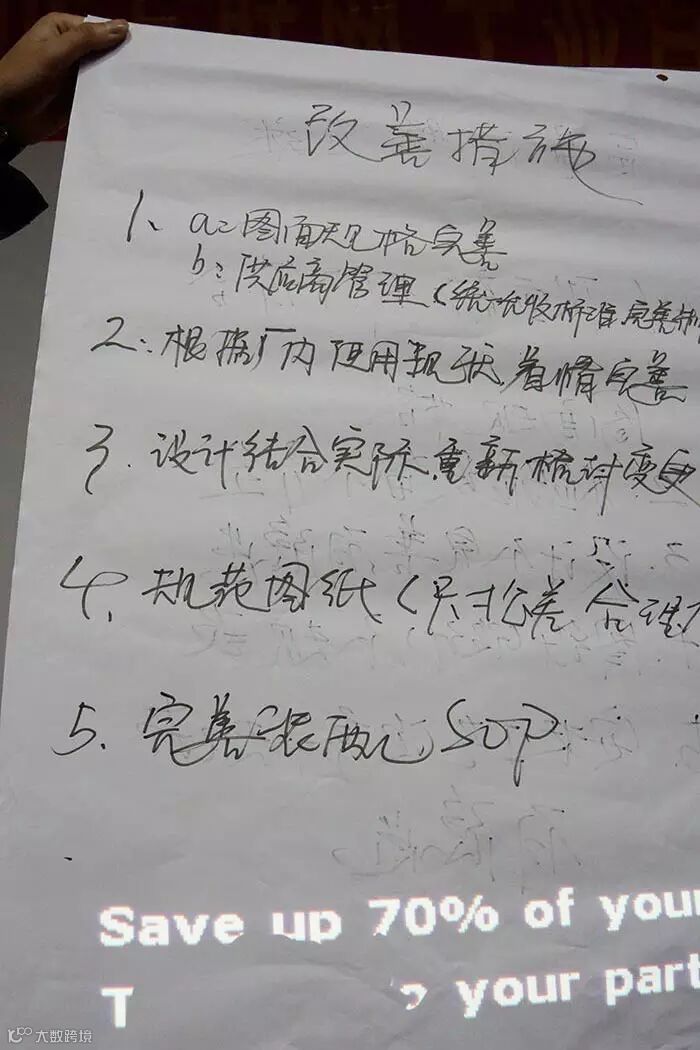 改善措施
1、a:图面规格完善
b:供应商管理(统一允收标准,完善
2:根据厂内使用现状,着情完善
3.设计结合实际,重新检讨变更
4、规范图纸(尺寸公差合理
5.完善装配SOP
Save up 70% of your
T your part
大数跨境